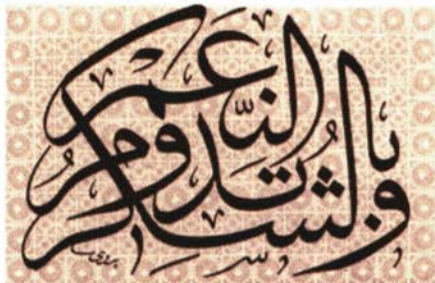 وبالشكر تدوم النعم